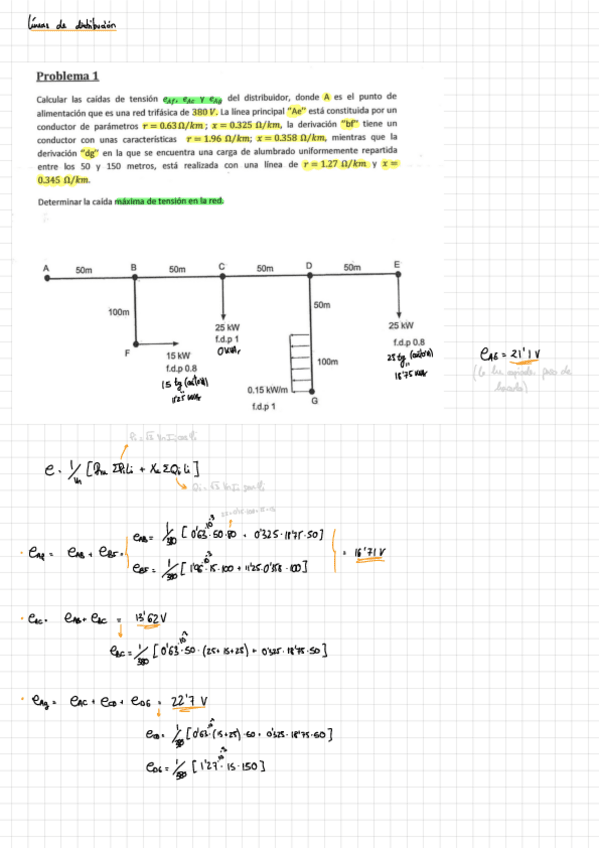 Líneas de distribución
Problema 1
Calcular las caídas de tensión e_AF, e_AC y e_AG del distribuidor, donde A es el punto de
alimentación que es una red trifásica de 380 V. La línea principal "Ae" está constituida por un
conductor de parámetros r = 0.63 Ω/km ; x = 0.325 Ω/km, la derivación "bf" tiene un
conductor con unas características r = 1.96 Ω/km; x = 0.358 Ω/km, mientras que la
derivación "dg" en la que se encuentra una carga de alumbrado uniformemente repartida
entre los 50 y 150 metros, está realizada con una línea de r = 1.27 Ω/km y x =
0.345 Ω/km.
Determinar la caída máxima de tensión en la red.
A 50m B 50m C 50m D 50m E
100m
50m
F
15 kW
f.d.p 0.8
15 tg (acos(0'8))
11'25 kVAr
25 kW
f.d.p 1
0 kVAr
100m
0.15 kW/m
G
f.d.p 1
25 kW
f.d.p 0.8
25 tg (acos(0'8))
18'75 kVAr
e_AG = 21'1 V
Pi = √3 Un Ii cos φi
e = 1/Un [Ru ΣPi Li + Xu ΣQi Li]
Qi = √3 Un Ii sen φi
e_AB = 1/380 [0'63·10^-3·50·80 + 0'325·18'75·50]
· e_AF = e_AB + e_BF = 16'71 V
e_BF = 1/380 [1'96·15·100 + 11'25·0'358·100]
· e_AC = e_AB + e_BC = 13'62 V
e_BC = 1/380 [0'63·10^-3·50·(25+15+25) + 0'325·18'75·50]
· e_AG = e_AC + e_CD + e_DG = 22'7 V
e_CD = 1/380 [0'63·(15+25)·50 + 0'325·18'75·50]
e_DG = 1/380 [1'27·15·150]